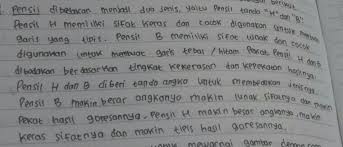 berikut.
Pensil dibedakan menjadi dua jenis, yaitu Pensil tanda "H" dan "B".
Pensil H memiliki sifat keras dan cocok digunakan untuk
garis yang tipis. Pensil B memiliki sifat lunak dan cocok
digunakan untuk membuat garis tebal / hitam pekat. Pensil H dan B
dibedakan berdasarkan tingkat kekerasan dan kepekatan hasilnya.
Pensil H dan B diberi tanda angka untuk membedakan jenisnya.
Pensil B makin besar angkanya makin lunak sifatnya dan makin
Pekat hasil goresannya. Pensil H makin besar angkanya makin
keras sifatnya dan makin tipis hasil goresannya.
mewarnai gambar dengan